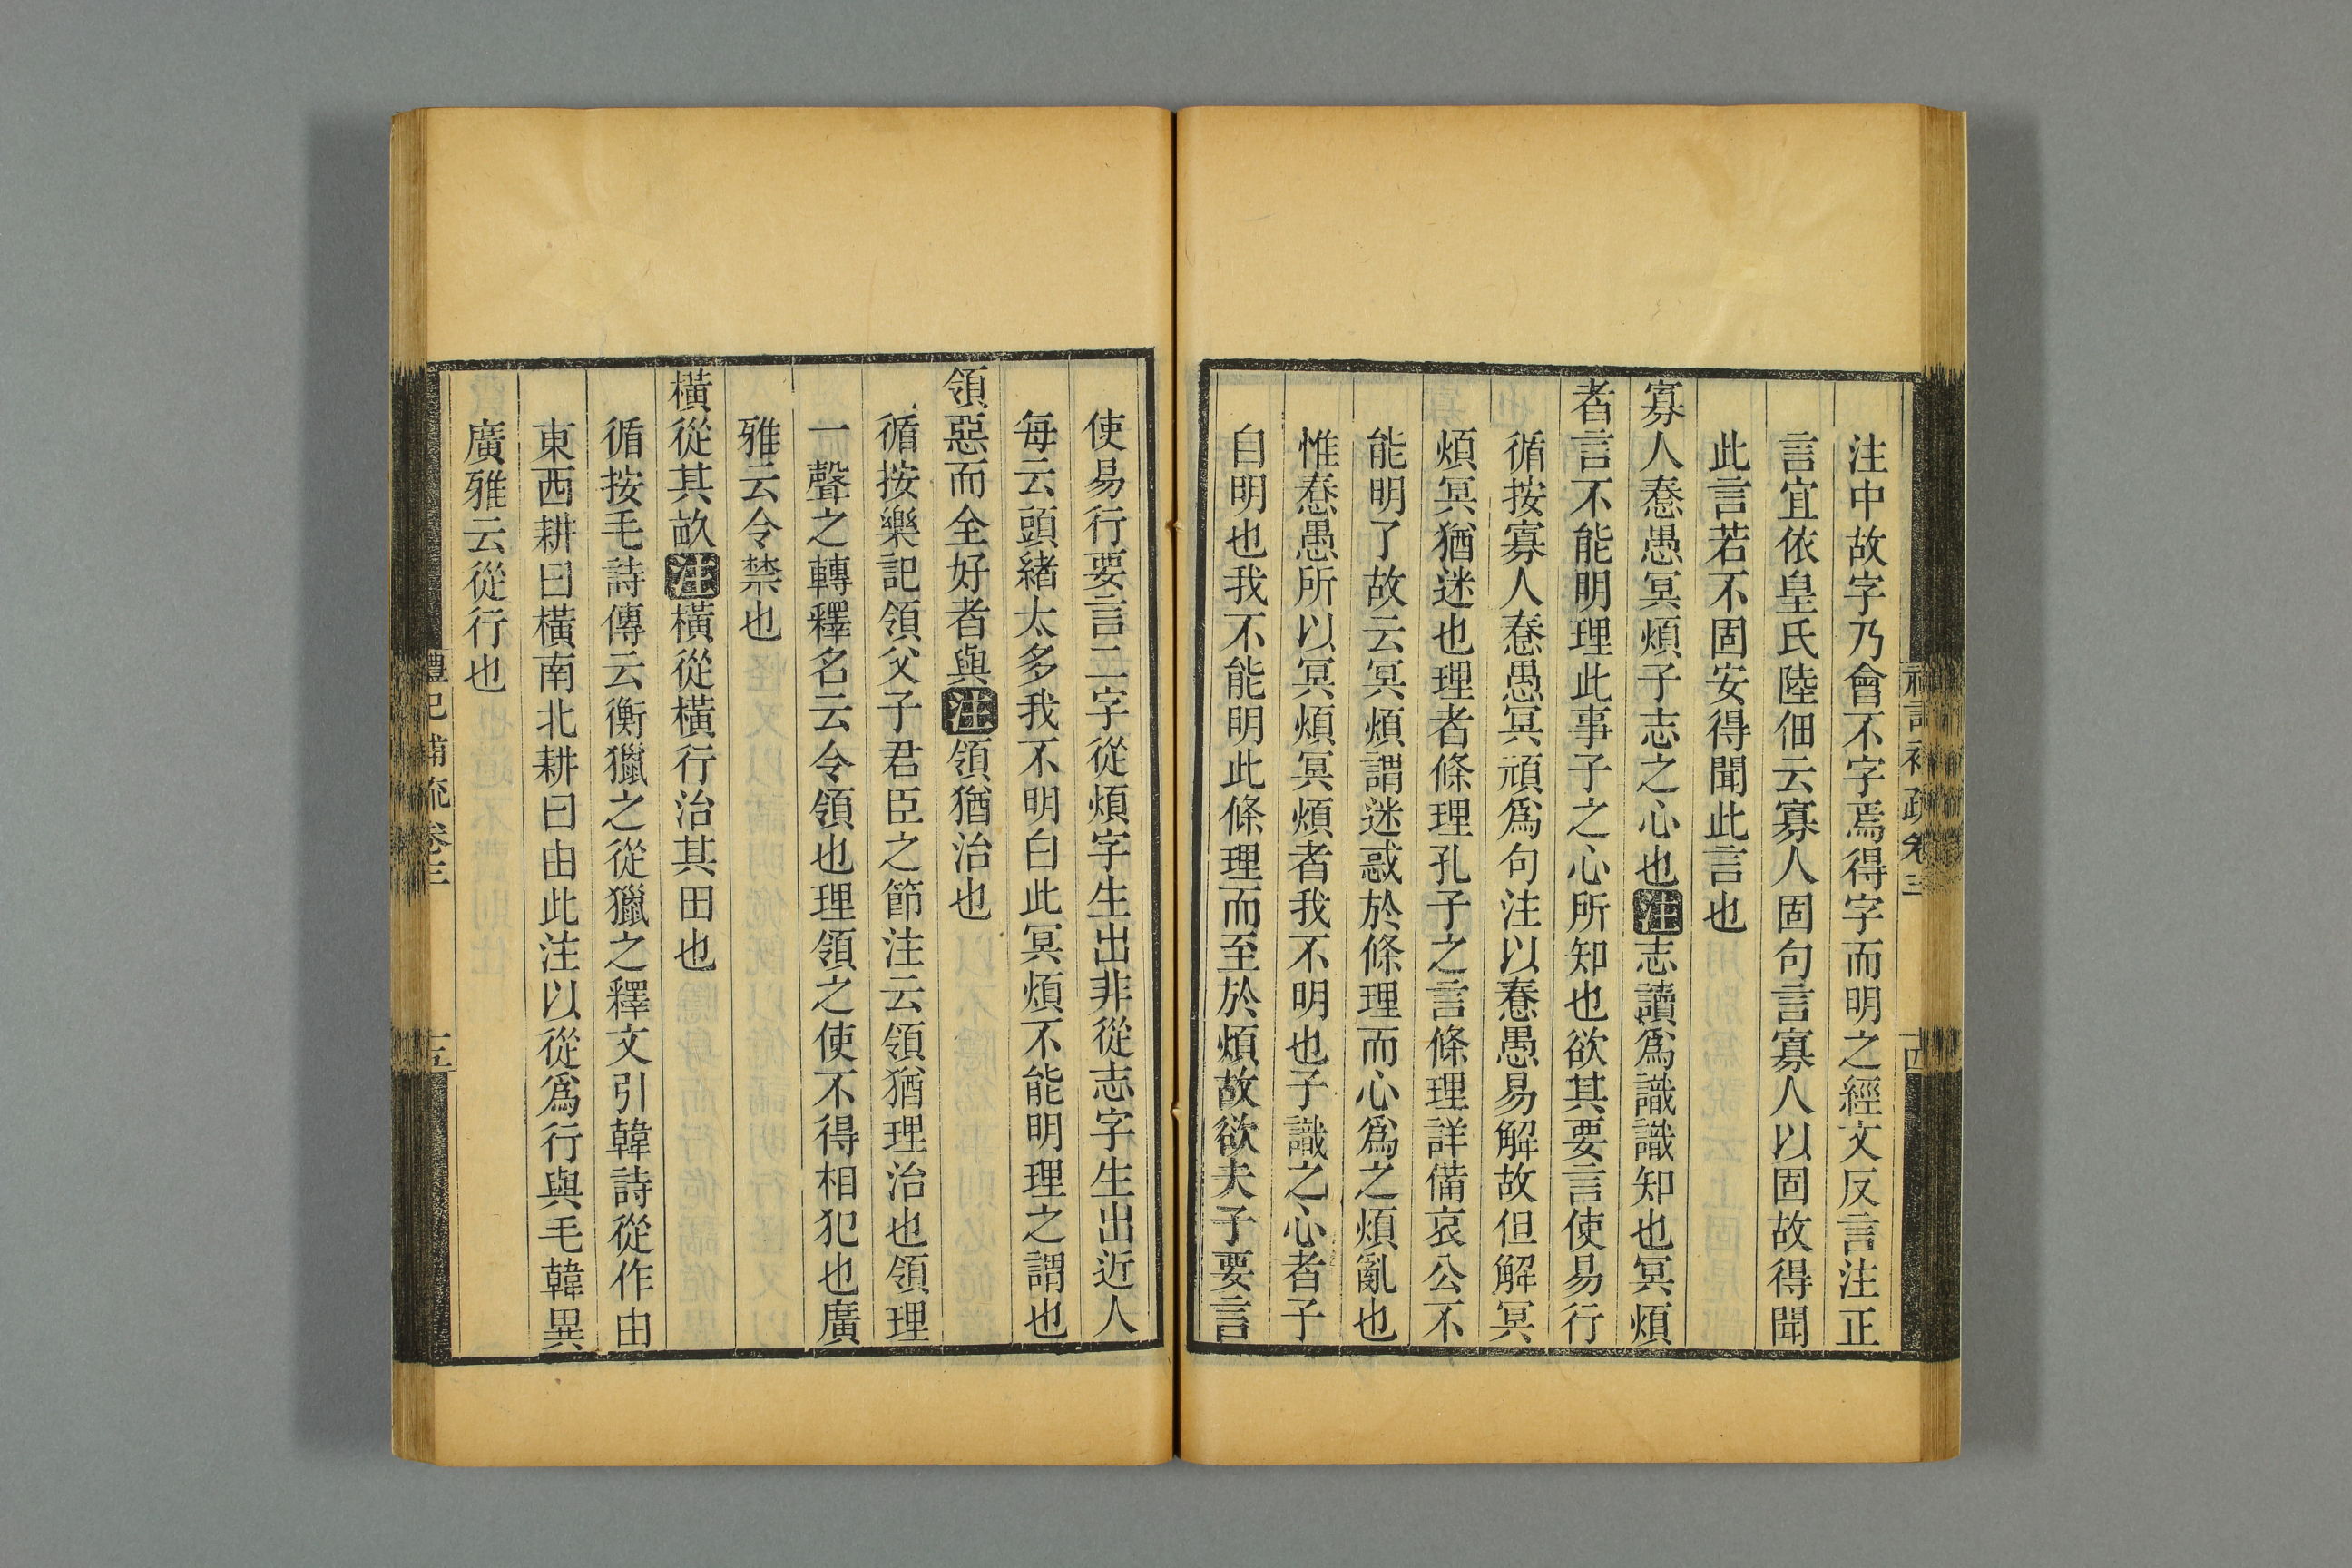 注中故字乃會不字焉得字而明之經文反言注正
言宜依皇氏陸佃云寡人固句言寡人以固故得聞
此言若不固安得聞此言也
寡人惷愚冥煩子志之心也注志讀爲識識知也冥煩
者言不能明理此事子之心所知也欲其要言使易行
循按寡人惷愚冥頑爲句注以惷愚易解故但解冥
煩冥猶迷也理者條理孔子之言條理詳備哀公不
能明了故云冥煩謂迷惑於條理而心爲之煩亂也
惟惷愚所以冥煩冥煩者我不明也子識之心者子
自明也我不能明此條理而至於煩故欲夫子要言
使易行要言二字從煩字生出非從志字生出近人
每云頭緒太多我不明白此冥煩不能明理之謂也
領惡而全好者與注領猶治也
循按樂記領父子君臣之節注云領猶理治也領理
一聲之轉釋名云令領也理領之使不得相犯也廣
雅云令禁也
橫從其畝注橫從橫行治其田也
循按毛詩傳云衡獵之從獵之釋文引韓詩從作由
東西耕曰橫南北耕曰由此注以從爲行與毛韓異
廣雅云從行也
禮記補疏卷三